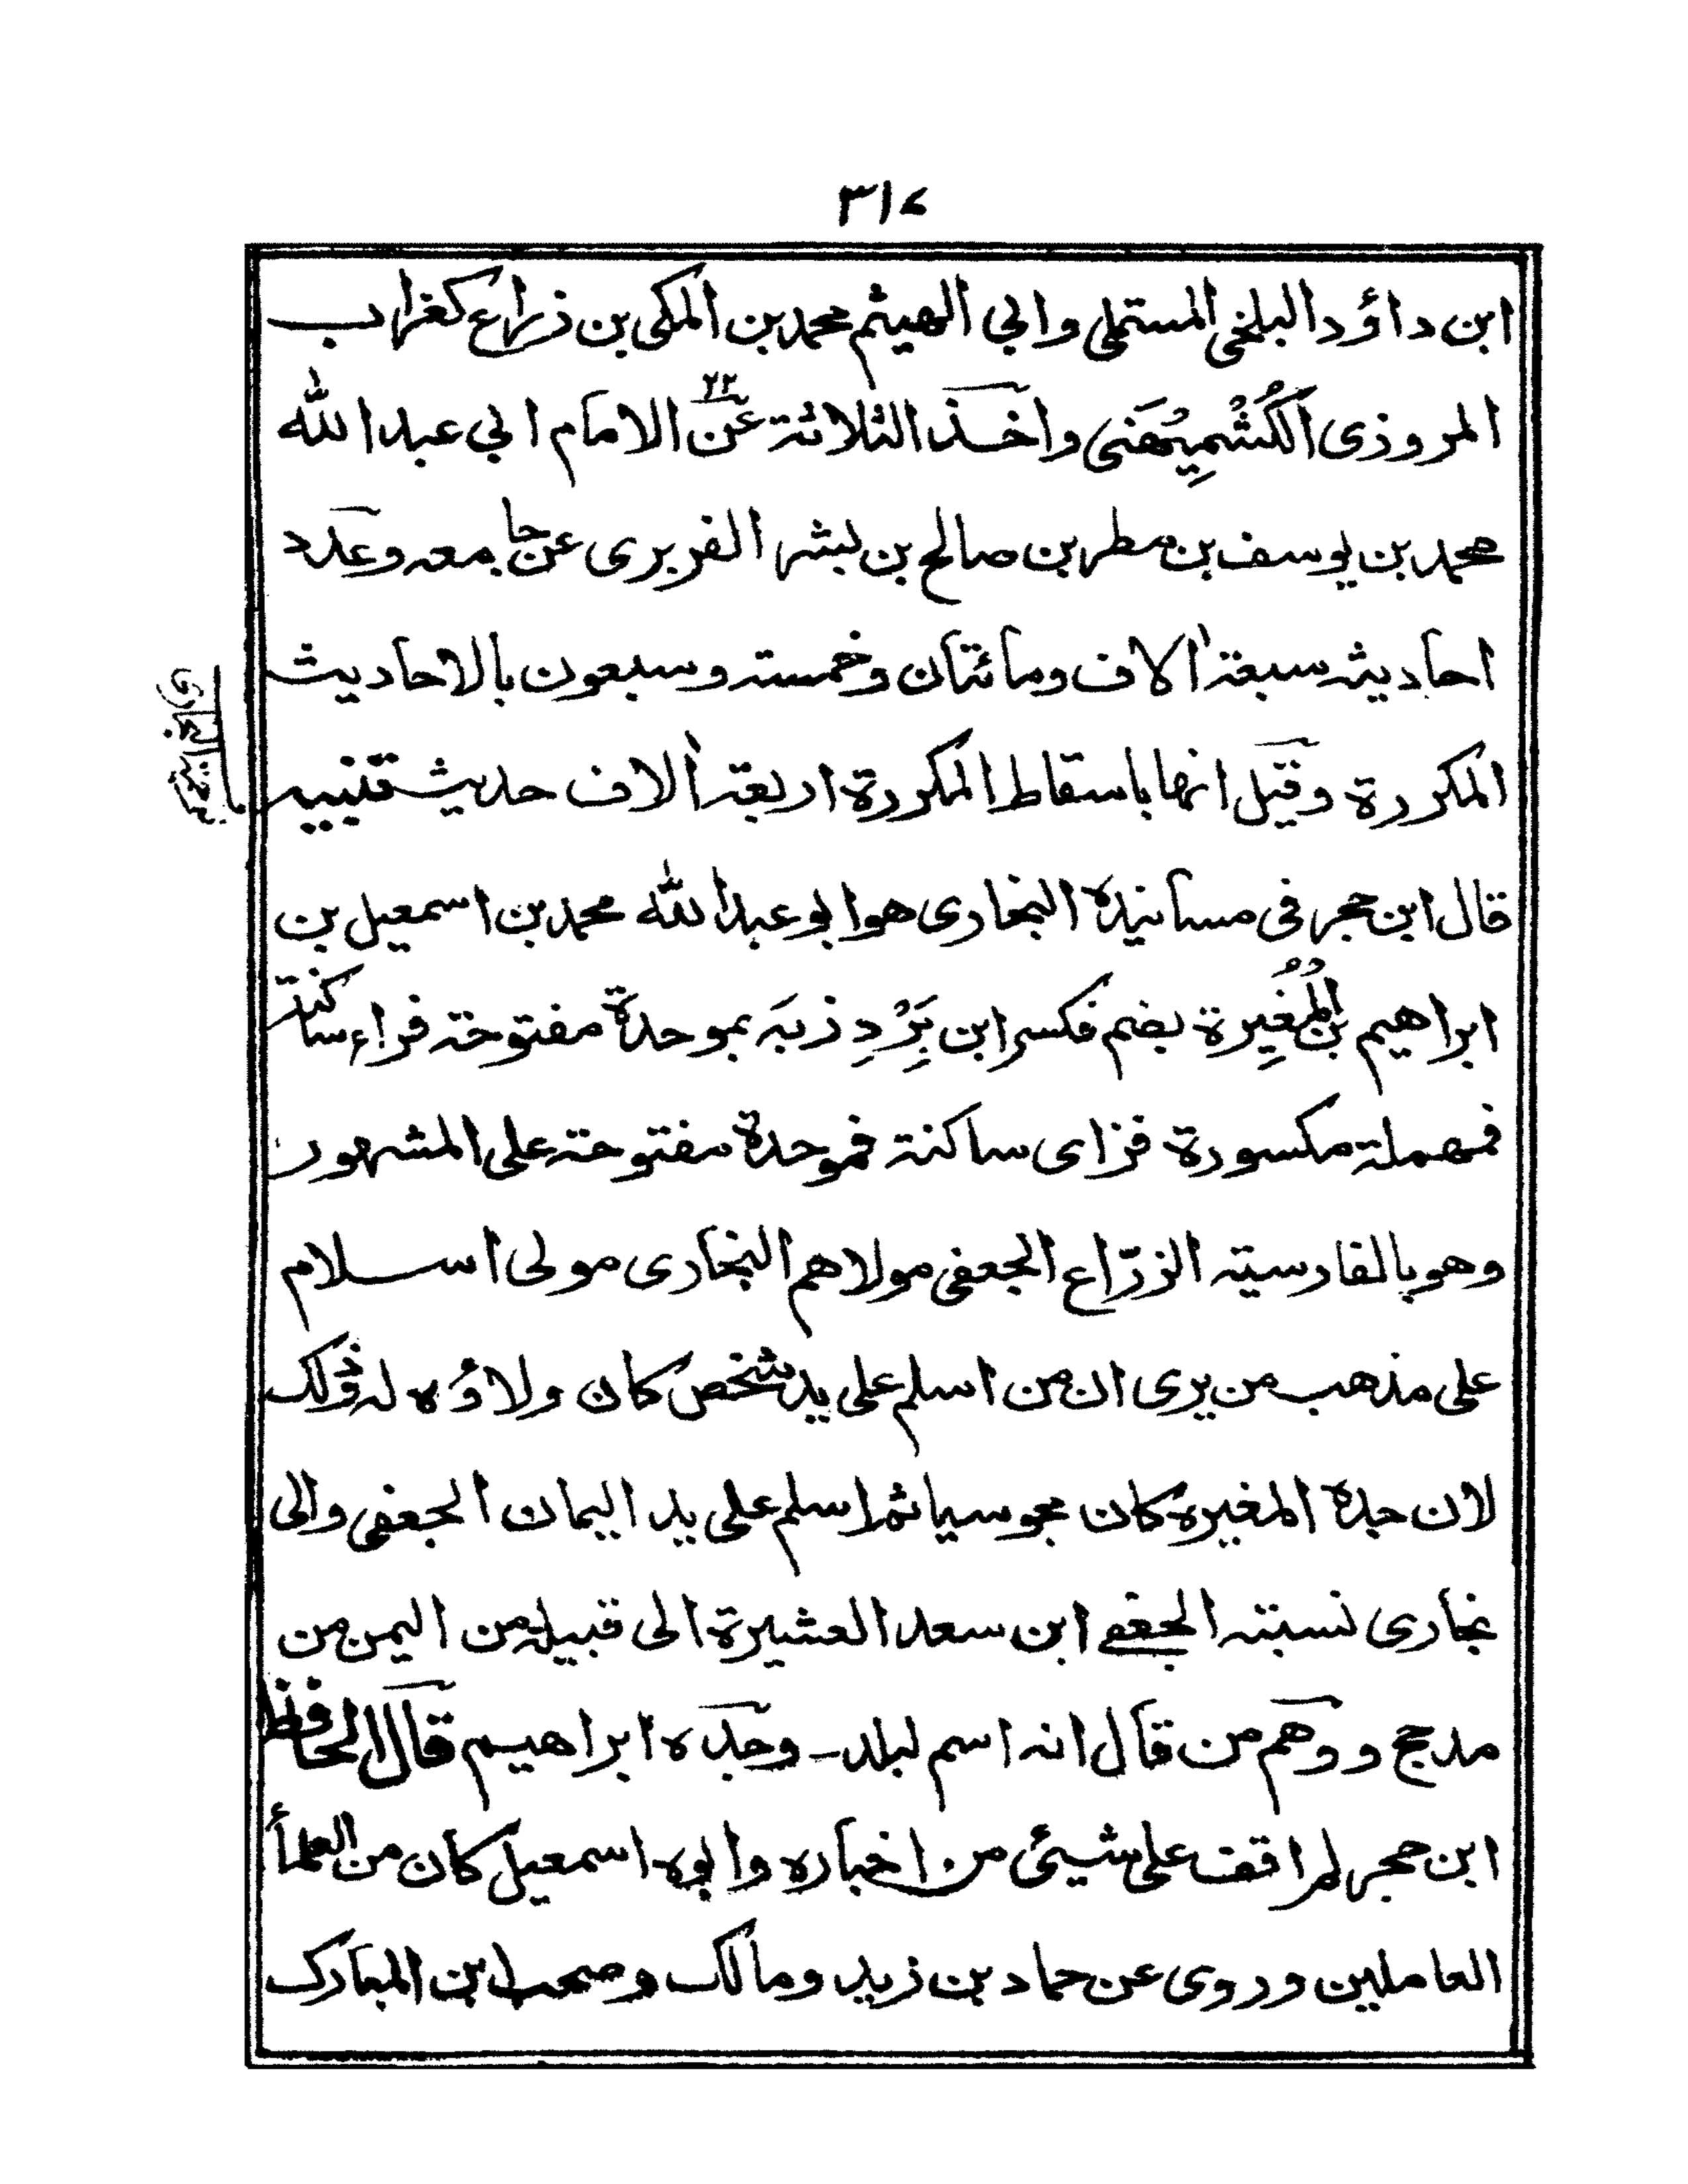 ٣١٤
ابن داؤد البلخي المستملي وابي الهيثم محمد بن المكي بن زراع كغراب
المروزي الكُشْمِيْهَني واخذ الثلاثة عن الامام ابي عبد الله
٢٢
محمد بن يوسف بن مطر بن صالح بن بشر الفربري عن جامعه وعدد
احاديثه سبعة الاف ومائتان وخمسة وسبعون بالاحاديث
المكررة وقيل انها باسقاط المكررة اربعة الاف حديث تنبيه
قال ابن حجر في مسانيده البخاري هو ابو عبد الله محمد بن اسمعيل بن
ابراهيم بن المُغِيرة بضم فكسر ابن بَرْدِزبَه بموحدة مفتوحة فراء ساكنة
فمهملة مكسورة فزاى ساكنة فموحدة مفتوحة على المشهور
وهو بالفارسية الزرّاع الجعفي مولاهم البخاري مولى اسلام
على مذهب من يرى ان من اسلم على يد شخص كان ولاؤه له وذلك
لان جده المغيرة كان مجوسيا ثم اسلم على يد اليمان الجعفي والى
بخارى نسبته الجعفي ابن سعد العشيرة الى قبيلة من اليمن من
مدحج ووهم من قال انه اسم لبلد - وجده ابراهيم قال الحافظ
ابن حجر لم اقف على شيئ من اخباره وابوه اسمعيل كان من العلمأ
العاملين وروى عن حماد بن زيد ومالك وصحب ابن المبارك
ترجمة البخاري